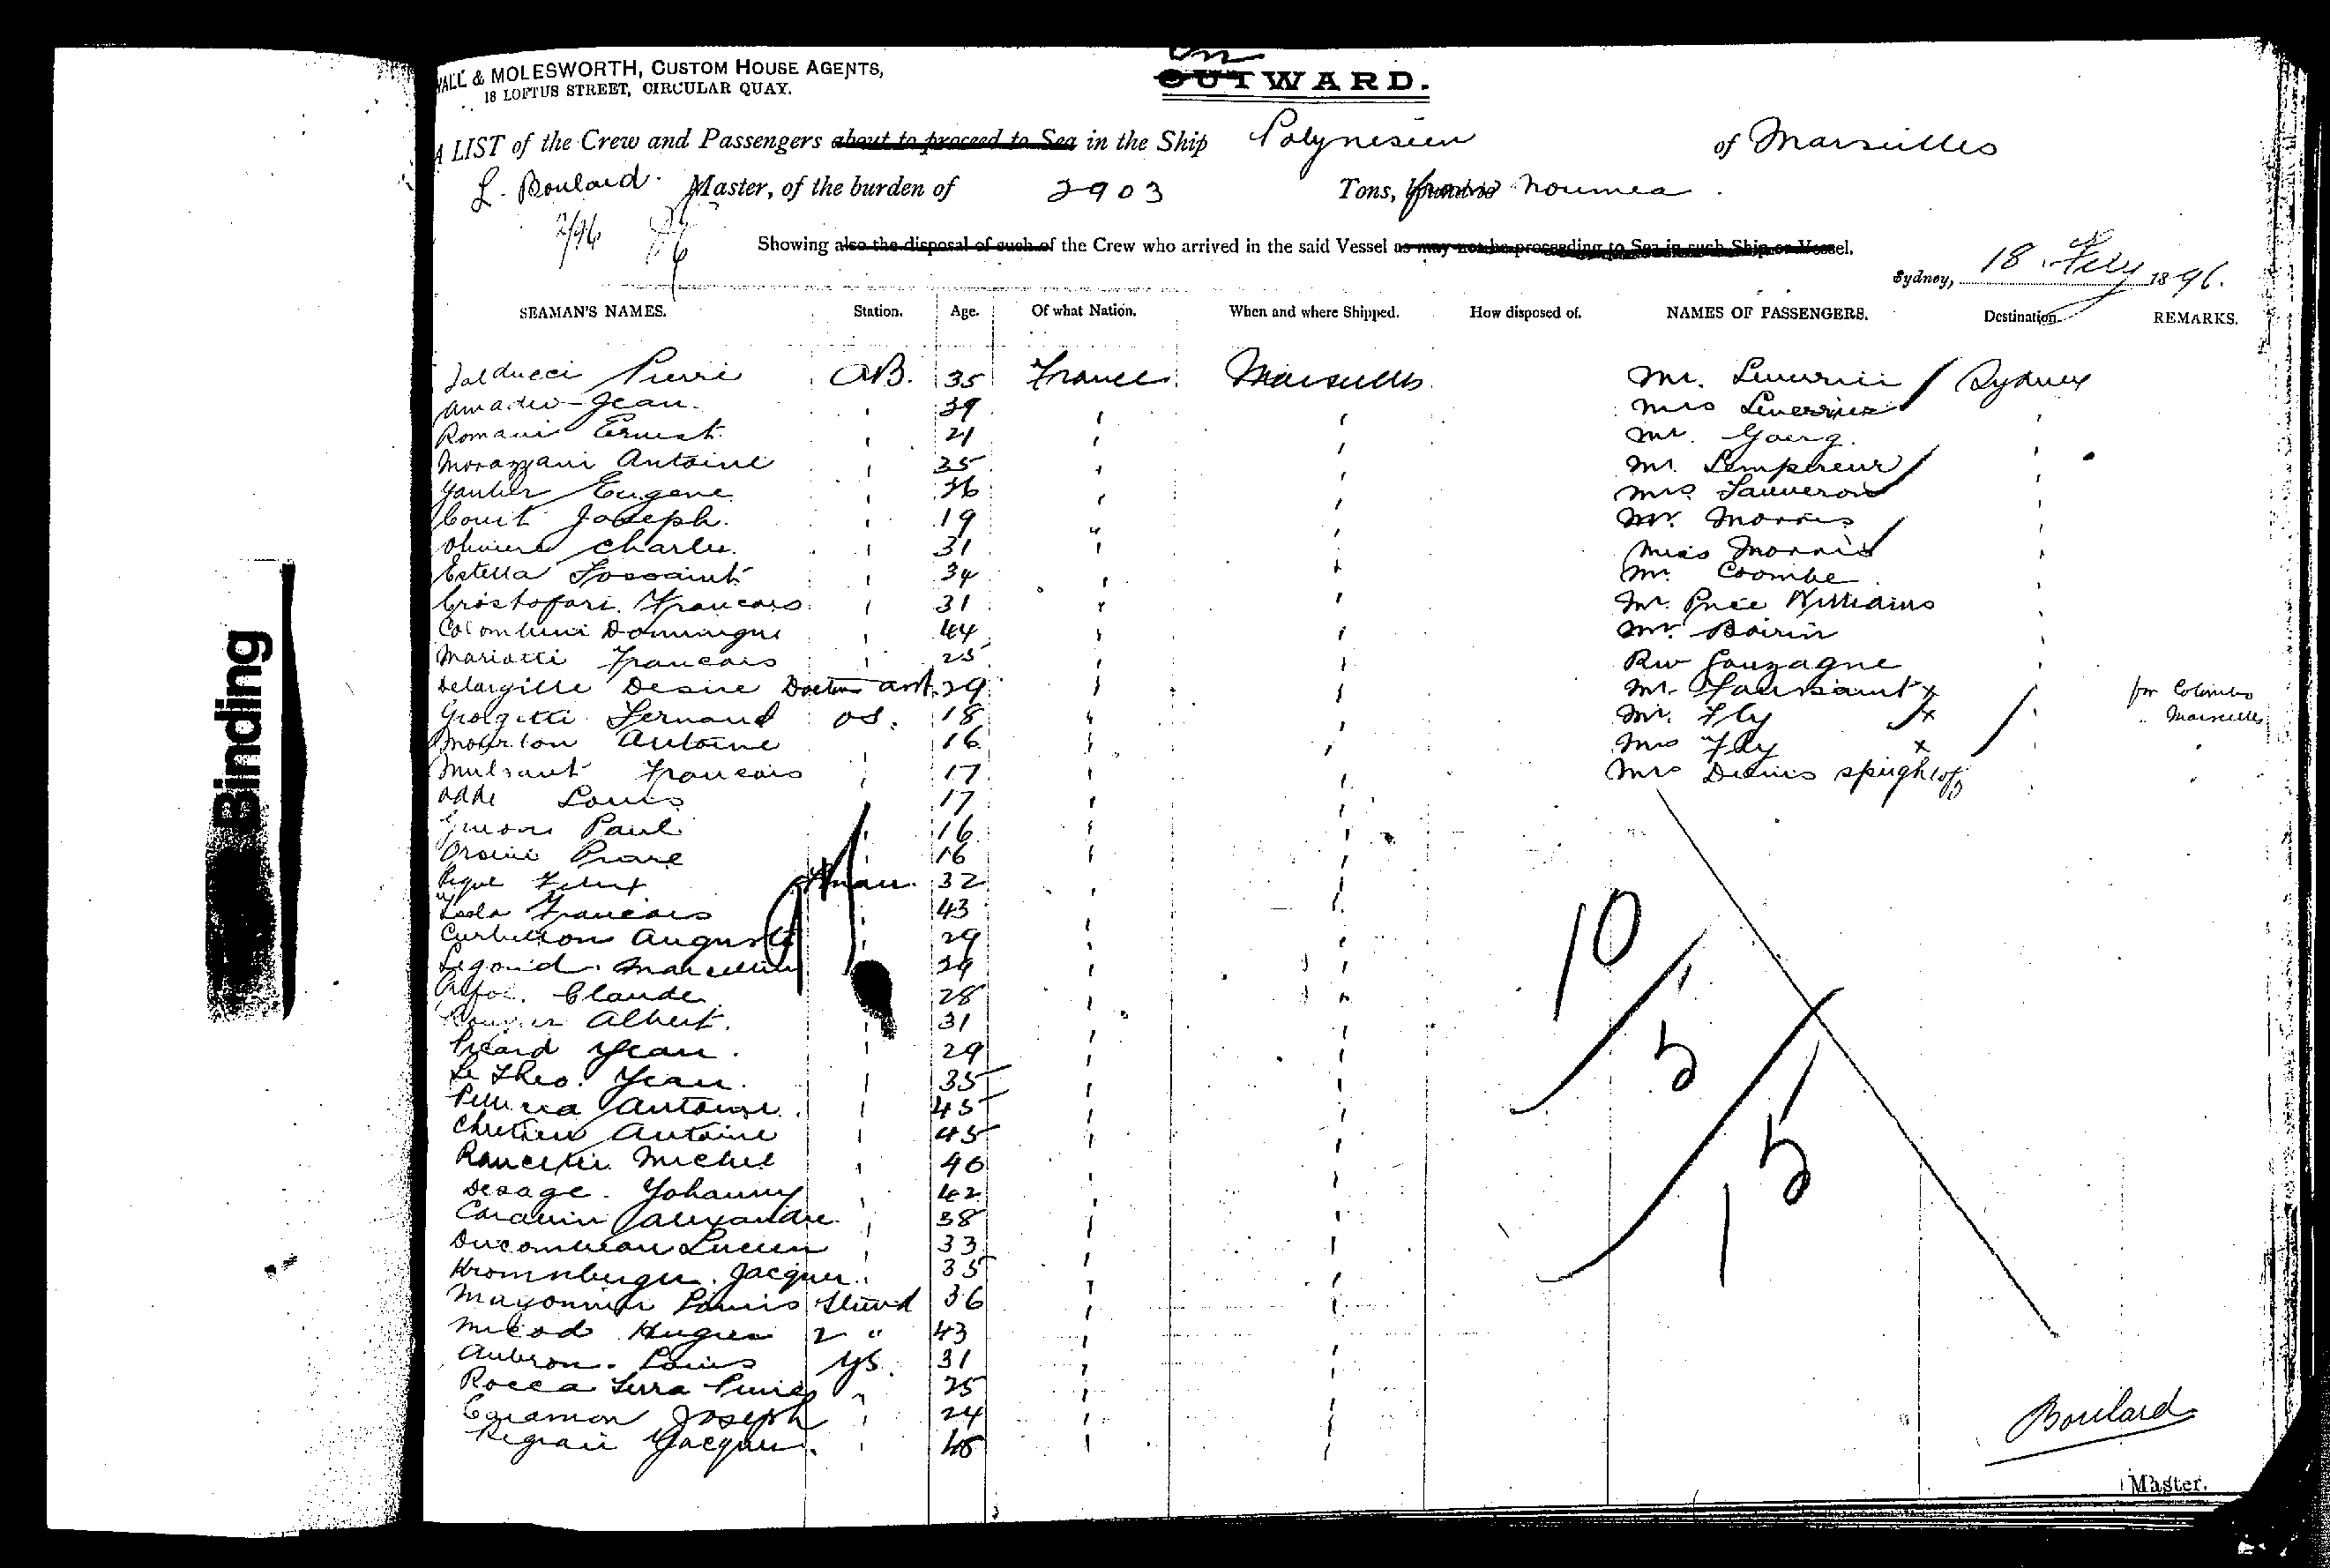 WALL & MOLESWORTH, CUSTOM HOUSE AGENTS,
18 LOFTUS STREET, CIRCULAR QUAY.
In
OUTWARD.
A LIST of the Crew and Passengers about to proceed to Sea in the Ship Polynesien of Marseilles
L. Boulard. Master, of the burden of 2903 Tons, from Noumea.
2/96
Showing also the disposal of such of the Crew who arrived in the said Vessel as may not be proceeding to Sea in such Ship or Vessel.
Sydney, 18 Feby 1896.
SEAMAN'S NAMES. Station. Age. Of what Nation. When and where Shipped. How disposed of. NAMES OF PASSENGERS. Destination. REMARKS.
Pierre AB. 35 France Marseilles Mr. Leverrier Sydney
Amadeo Jean. 39 Mrs Leverrier
Romani Ernest. 21 Mr. Goerg.
Morazzani Antoine 35 Mr. Lempereur
Gautier Eugene 36 Mrs Sauveron
Court Joseph. 19 Mr. Morris
Charles. 31 Miss Morris
Estella Toussaint 34 Mr. Coombe
Cristofari. Francois. 31 Mr. Price Williams
Colombini Dominique 44 Mr. Boirin
Mariotti Francois 25 Rev Gonzagne
Desire Doctors asst. 29 Mr. Toussaint x for Colombo
Giorgetti Fernand OS. 18 Mr. Fly x " Marseilles
Mourlon Antoine 16 Mrs Fly x
Mulsant Francois 17 Mrs Denis
Adde Louis 17
Paul 16
Orsini 16
32
Francois 43
Auguste 29
Marcellin 29
Claude 28
Albert. 31
Picard Jean. 29
Le Theo. Jean. 35
Antoine. 45
Chretien Antoine 45
Michel 40
Desage. Johanny 42
Alexandre 38
Ducombeau Lucien 33
Kromnberger. Jacques. 35
Mayonnier Louis Stewd 36
Hugues 2 " 43
Aubron. Louis 31
Rocca Serra Pierre 25
Joseph 24
Jacques. 48
10
5
15
Boulard
Master.
Binding